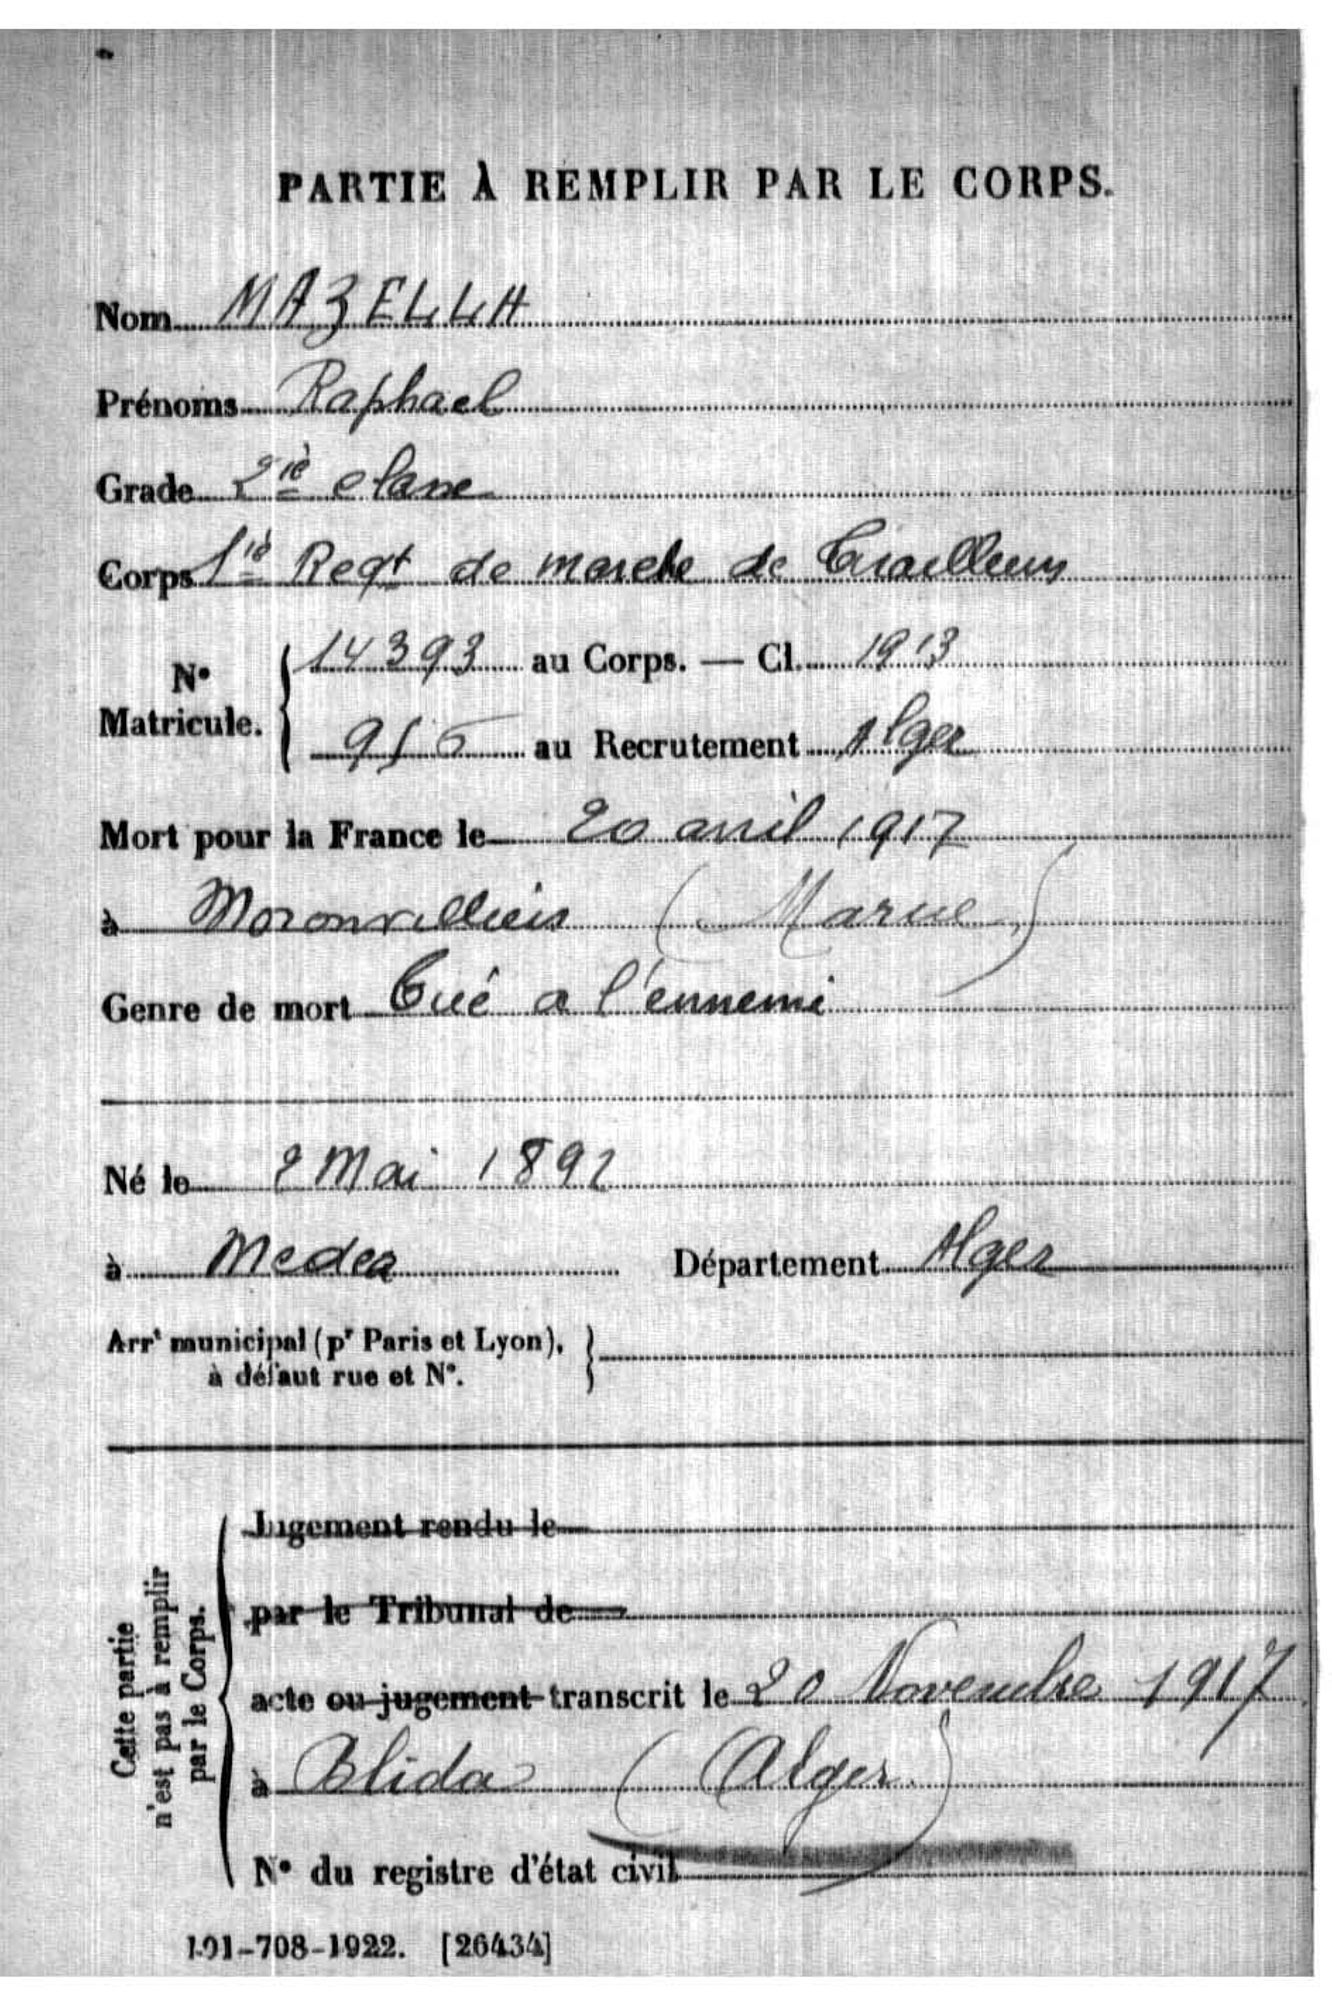 PARTIE À REMPLIR PAR LE CORPS.
Nom MAZELLA
Prénoms Raphael
Grade 2ie classe
Corps 1ie Regt de marche de Tirailleurs
N° Matricule. { 14393 au Corps. — Cl. 1913
au Recrutement Alger
Mort pour la France le 20 avril 1917
à Moronvilliers (Marne)
Genre de mort Tué a l'ennemi
Né le 2 Mai 1892
à Medea Département Alger
Arrt municipal (pr Paris et Lyon),
à défaut rue et N°.
Cette partie
n'est pas à remplir
par le Corps.
Jugement rendu le
par le Tribunal de
acte ou jugement transcrit le 20 Novembre 1917
à Blida (Alger)
N° du registre d'état civil
101-708-1922. [26434]